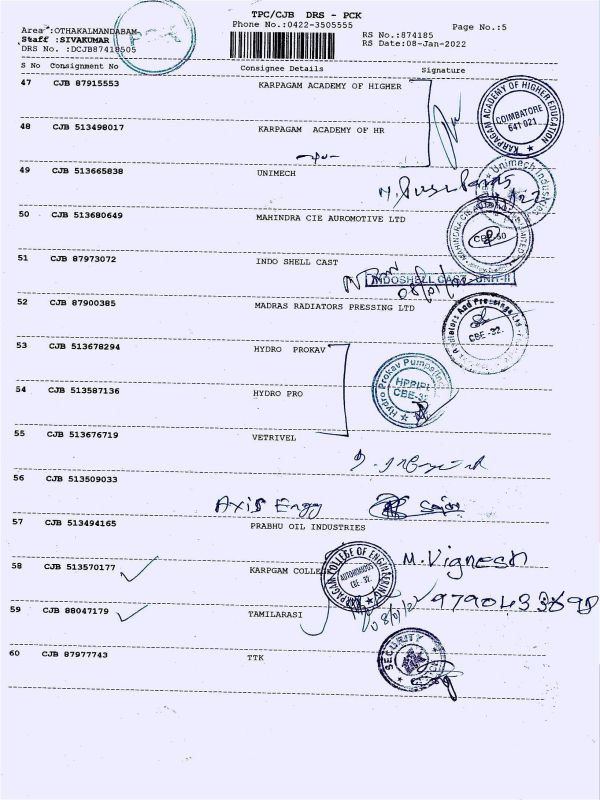 TPC/CJB DRS - PCK
Phone No.:0422-3505555
Page No.:5
Area :OTHAKALMANDABAM
Staff :SIVAKUMAR
DRS No. :DCJB87418505
RS No.:874185
RS Date:08-Jan-2022
S No Consignment No Consignee Details Signature
47 CJB 87915553 KARPAGAM ACADEMY OF HIGHER
KARPAGAM ACADEMY OF HIGHER EDUCATION
COIMBATORE
641 021
48 CJB 513498017 KARPAGAM ACADEMY OF HR
49 CJB 513665838 UNIMECH
Unimech Industries
50 CJB 513680649 MAHINDRA CIE AUROMOTIVE LTD
51 CJB 87973072 INDO SHELL CAST
INDOSHELL CAST UNIT-II
52 CJB 87900385 MADRAS RADIATORS PRESSING LTD
CBE-32.
53 CJB 513678294 HYDRO PROKAV
Hydro Prokav Pumps
HPPIPL
54 CJB 513587136 HYDRO PRO
55 CJB 513676719 VETRIVEL
56 CJB 513509033
Axis Engg
57 CJB 513494165 PRABHU OIL INDUSTRIES
58 CJB 513570177 KARPGAM COLLE
KARPAGAM COLLEGE OF ENGINEERING
AUTONOMOUS
CBE-32.
M. Vignesh
59 CJB 88047179 TAMILARASI
60 CJB 87977743 TTK
SECURITY